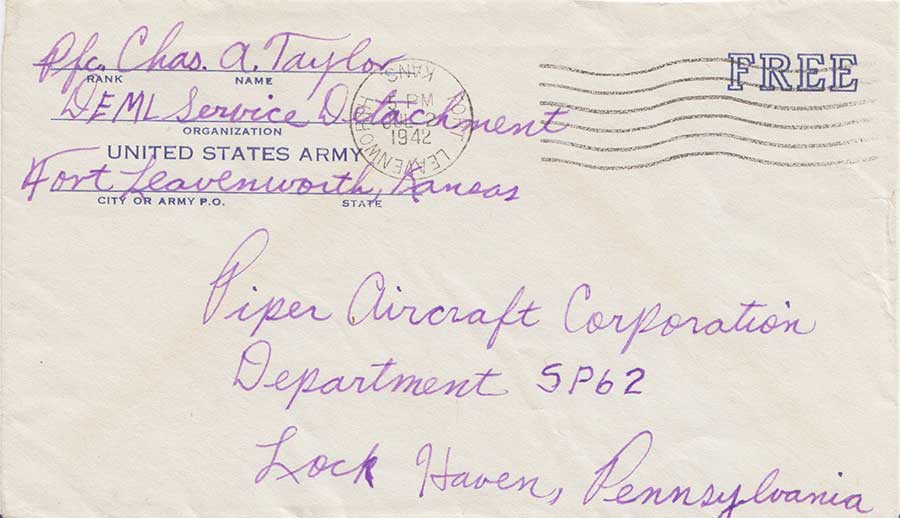 Pfc. Chas. A. Taylor
RANK NAME
DEML Service Detachment
ORGANIZATION
UNITED STATES ARMY
Fort Leavenworth, Kansas
CITY OR ARMY P.O. STATE
FORT LEAVENWORTH
KANS.
PM
1942
FREE
Piper Aircraft Corporation
Department SP62
Lock Haven, Pennsylvania